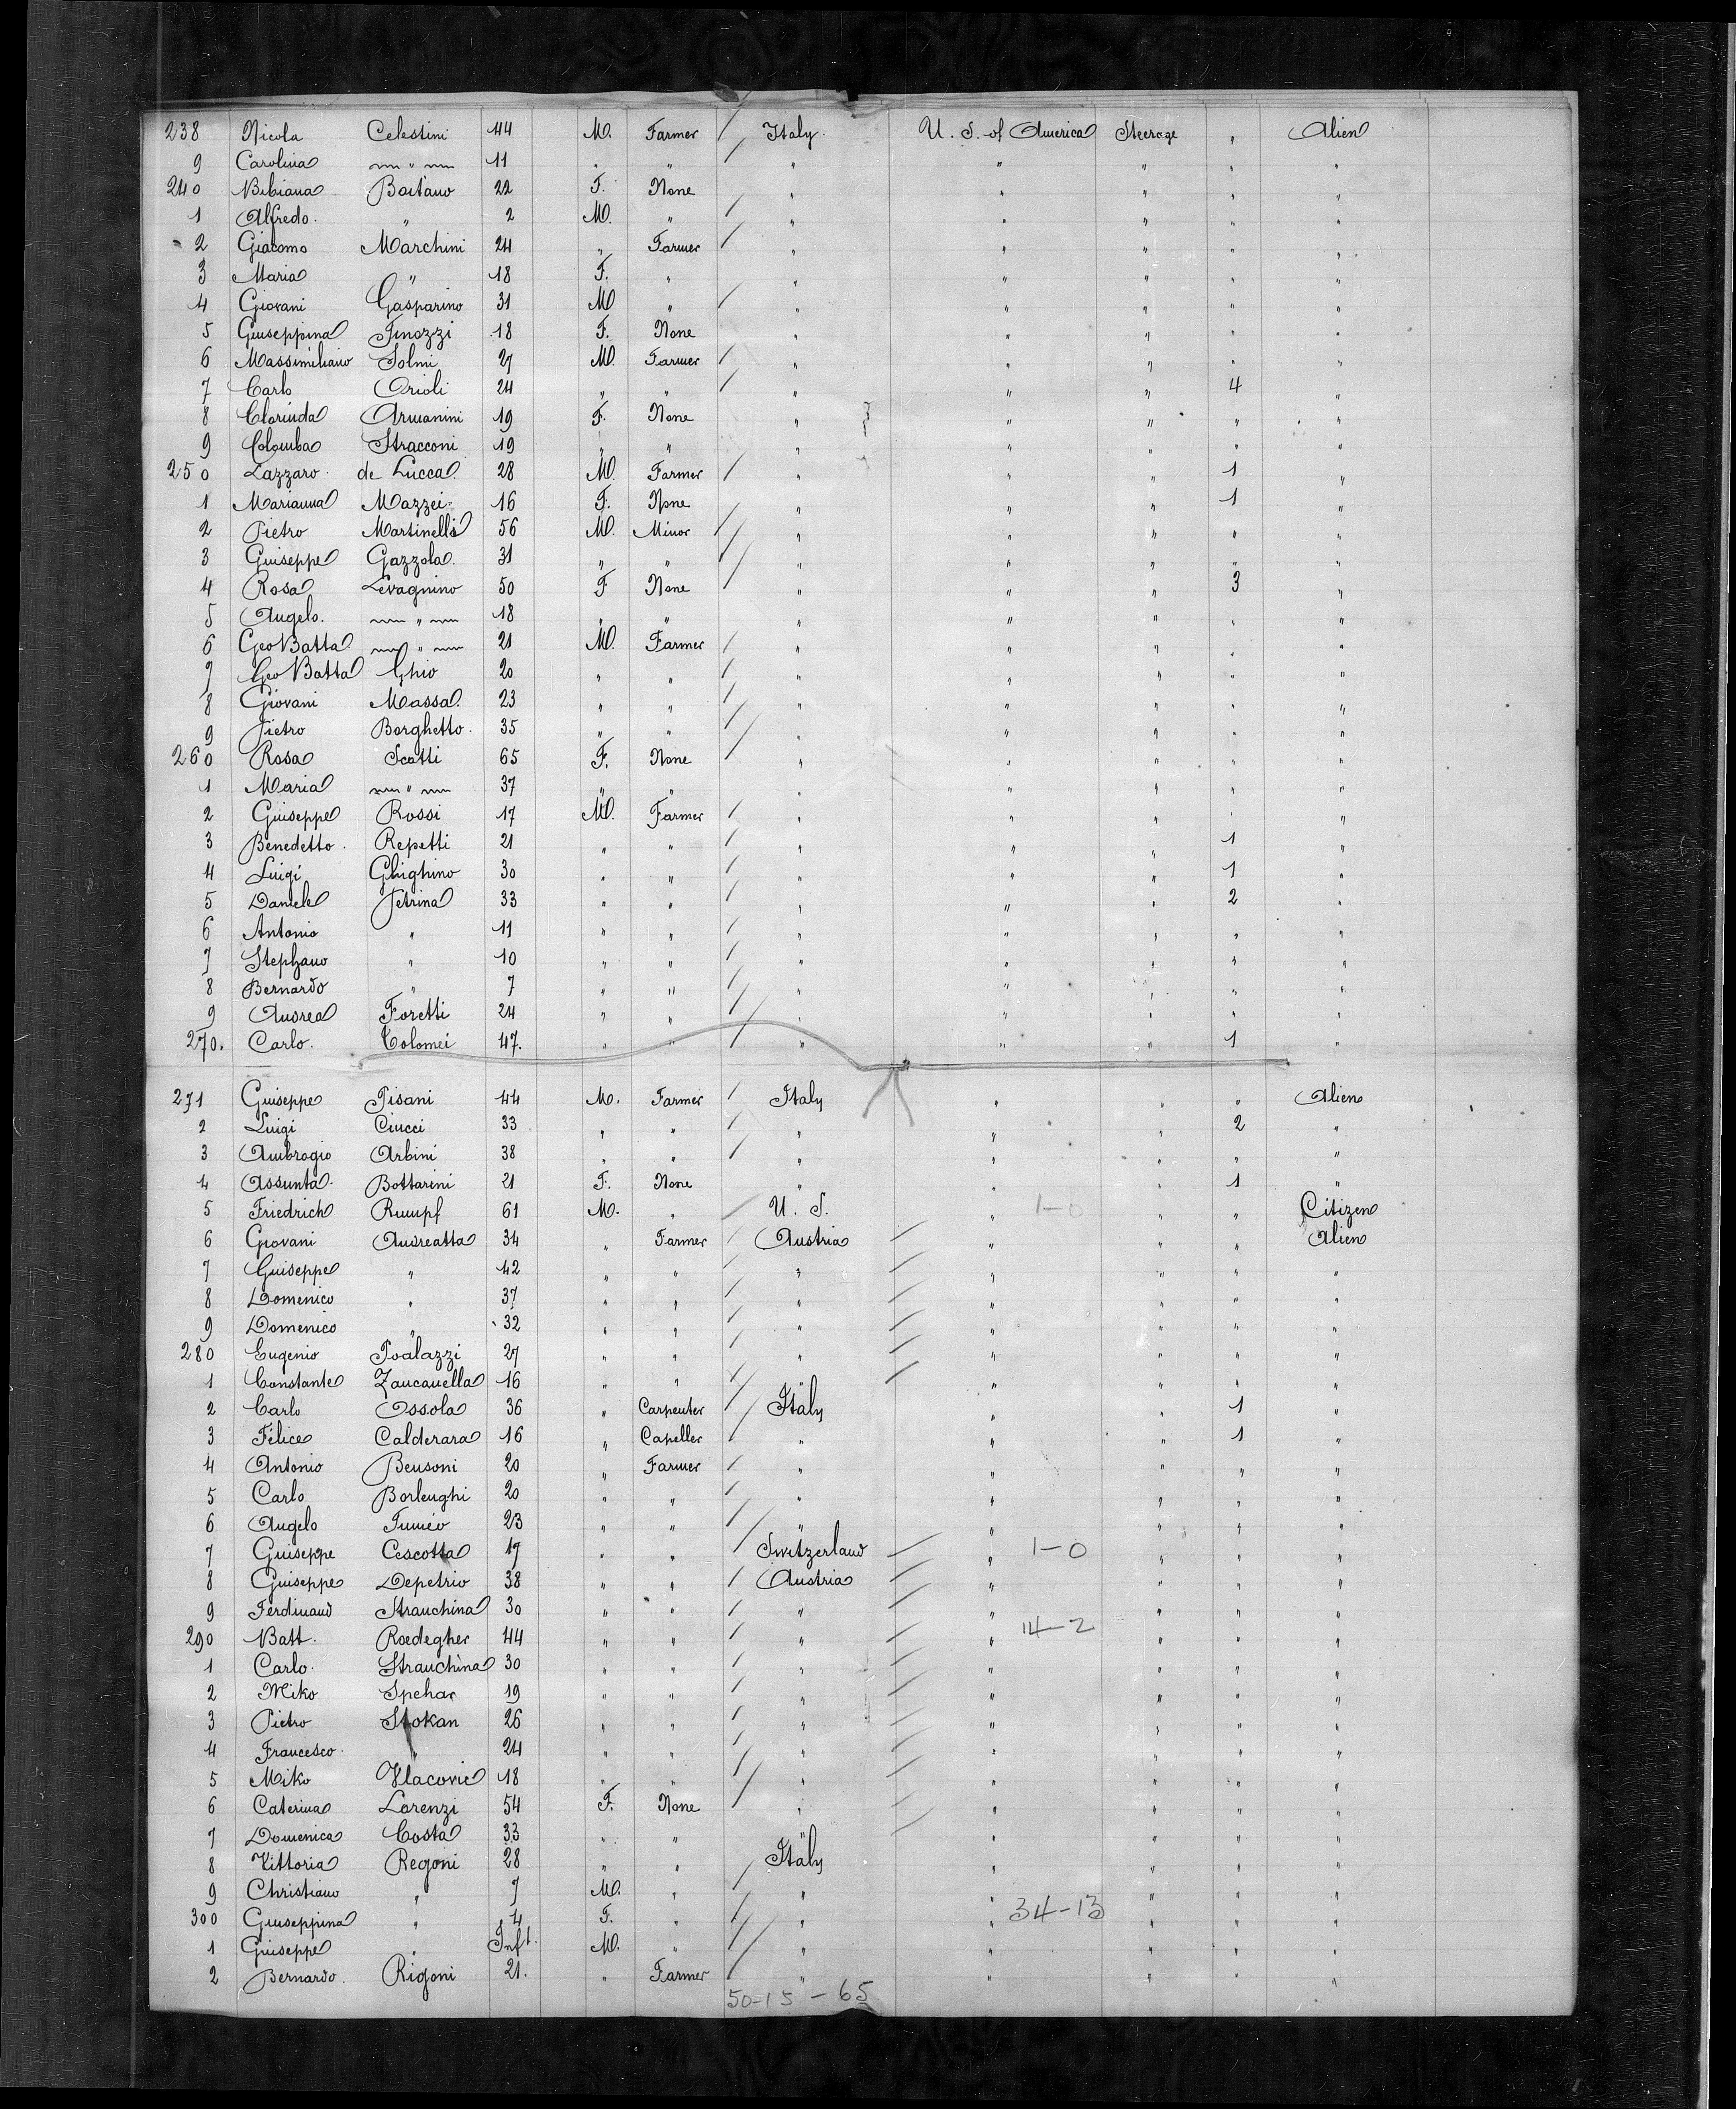 238 Nicola Celestini 44 M. Farmer / Italy. U. S. of America Steerage " Alien
9 Carolina " 11 " " " " " " "
240 Bibiana Boitano 22 F. None " " " " "
1 Alfredo. " 2 M. " / " " " " "
2 Giacomo Marchini 24 " Farmer / " " " " "
3 Maria " 18 F. " " " " " "
4 Giovani Gasparino 31 M " / " " " " "
5 Giuseppina Tinozzi 18 F. None " " " " "
6 Massimiliano Solmi 27 M. Farmer / " " " " "
7 Carlo Orioli 24 " " / " " " 4 "
8 Clorinda Armanini 19 F. None " " " " "
9 Colomba Stracconi 19 " " " " " " "
250 Lazzaro. de Lucca 28 M. Farmer / " " " 1 "
1 Marianna Mazzei 16 F. None " " " 1 "
2 Pietro Martinelli 56 M. Minor / " " " " "
3 Guiseppe Gazzola. 31 " " / " " " " "
4 Rosa Levagnino 50 F None / " " " 3 "
5 Angelo. " 18 " " " " " " "
6 Geo Batta " 21 M. Farmer / " " " " "
7 Geo Batta Ghio 20 " " / " " " " "
8 Giovani Massa. 23 " " / " " " " "
9 Pietro Borghetto. 35 " " / " " " " "
260 Rosa Scotti 65 F. None / " " " " "
1 Maria " 37 " " " " " " "
2 Guiseppe Rossi 17 M. Farmer / " " " " "
3 Benedetto. Repetti 21 " " / " " " 1 "
4 Luigi Ghighino 30 " " / " " " 1 "
5 Daniele Petrina 33 " " / " " " 2 "
6 Antonio " 11 " " / " " " " "
7 Stephano " 10 " " / " " " " "
8 Bernardo " 7 " " / " " " " "
9 Andrea Foretti 24 " " / " " " " "
270. Carlo. Colomei 47. " " / " " " 1 "
271 Guiseppe Pisani 44 M. Farmer / Italy " " " Alien
2 Luigi Ciucci 33 " " / " " " 2 "
3 Ambrogio Arbini 38 " " / " " " " "
4 Assunta. Bottarini 21 F. None " " " 1 "
5 Friedrich Rumpf 61 M. " / U. S. " 1-0 " " Citizen
6 Giovani Andreatta 34 " Farmer / Austria / " " " Alien
7 Guiseppe " 42 " " / " / " " " "
8 Domenico " 37 " " / " / " " " "
9 Domenico " 32 " " / " / " " " "
280 Eugenio Poalazzi 27 " " / " / " " " "
1 Constante Zancanella 16 " " / " / " " " "
2 Carlo Ossola 36 " Carpenter / Italy " " 1 "
3 Felice Calderara 16 " Capeller / " " " 1 "
4 Antonio Bensoni 20 " Farmer / " " " " "
5 Carlo Borlenghi 20 " " / " " " " "
6 Angelo Tuméo 23 " " / " " " " "
7 Guiseppe Cescotta 17 " " / Switzerland / " 1-0 " " "
8 Guiseppe Depetrio 38 " " / Austria / " " " "
9 Ferdinand Strauchina 30 " " / " / " " " "
290 Batt. Roedegher 44 " " / " / " 14-2 " " "
1 Carlo. Strauchina 30 " " / " / " " " "
2 Miko Spehar 19 " " / " / " " " "
3 Pietro Stokan 26 " " / " / " " " "
4 Francesco. " 24 " " / " / " " " "
5 Miko Vlacovic 18 " " / " / " " " "
6 Caterina Lorenzi 54 F. None / " / " " " "
7 Domenica Costa 33 " " " / " " " "
8 Vittoria Regoni 28 " " Italy " " " "
9 Christiano " 7 M. " / " " " " "
300 Giuseppina " 4 F. " / " " 34-13 " " "
1 Guiseppe " Inft. M. " / " " " " "
2 Bernardo. Rigoni 21. " Farmer / " " " " "
50-15 - 65